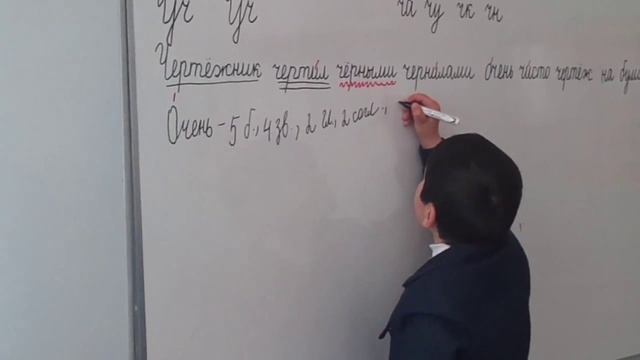 Чч Чч ча чу чк чн
Чертёжник чертил чёрными чернилами очень чисто чертёж на
Очень - 5 б., 4 зв., 2 гл, 2 согл.,